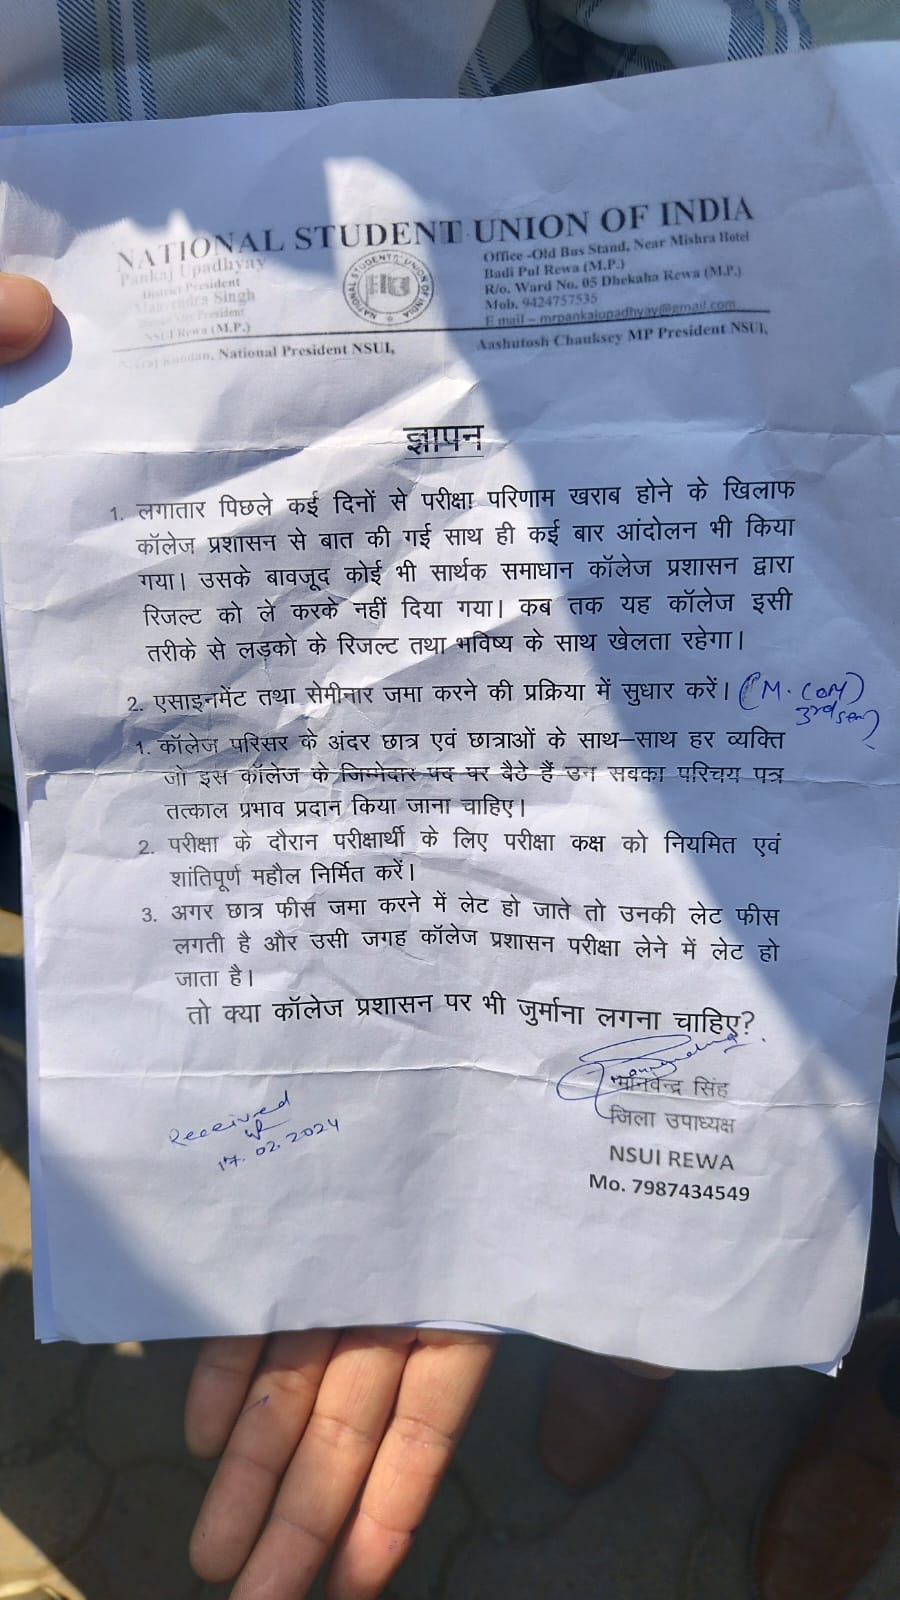 NATIONAL STUDENT UNION OF INDIA
Pankaj Upadhyay
District President
Manvendra Singh
President
NSUI Rewa (M.P.)
NATIONAL STUDENT'S UNION OF INDIA
Office -Old Bus Stand, Near Mishra Hotel
Badi Pul Rewa (M.P.)
R/o. Ward No. 05 Dhekaha Rewa (M.P.)
Mob. 9424757535
E mail – mrpankajupadhyay@gmail.com
Kundan, National President NSUI,
Aashutosh Chauksey MP President NSUI,
ज्ञापन
1. लगातार पिछले कई दिनों से परीक्षा परिणाम खराब होने के खिलाफ
कॉलेज प्रशासन से बात की गई साथ ही कई बार आंदोलन भी किया
गया। उसके बावजूद कोई भी सार्थक समाधान कॉलेज प्रशासन द्वारा
रिजल्ट को ले करके नहीं दिया गया। कब तक यह कॉलेज इसी
तरीके से लड़को के रिजल्ट तथा भविष्य के साथ खेलता रहेगा।
2. एसाइनमेंट तथा सेमीनार जमा करने की प्रक्रिया में सुधार करें। (M. COM)
3rd sem)
1. कॉलेज परिसर के अंदर छात्र एवं छात्राओं के साथ–साथ हर व्यक्ति
जो इस कॉलेज के जिम्मेदार पद पर बैठे हैं उन सबका परिचय पत्र
तत्काल प्रभाव प्रदान किया जाना चाहिए।
2. परीक्षा के दौरान परीक्षार्थी के लिए परीक्षा कक्ष को नियमित एवं
शांतिपूर्ण महौल निर्मित करें।
3. अगर छात्र फीस जमा करने में लेट हो जाते तो उनकी लेट फीस
लगती है और उसी जगह कॉलेज प्रशासन परीक्षा लेने में लेट हो
जाता है।
तो क्या कॉलेज प्रशासन पर भी जुर्माना लगना चाहिए?
मानवेन्द्र सिंह
जिला उपाध्यक्ष
NSUI REWA
Mo. 7987434549
Received
17.02.2024